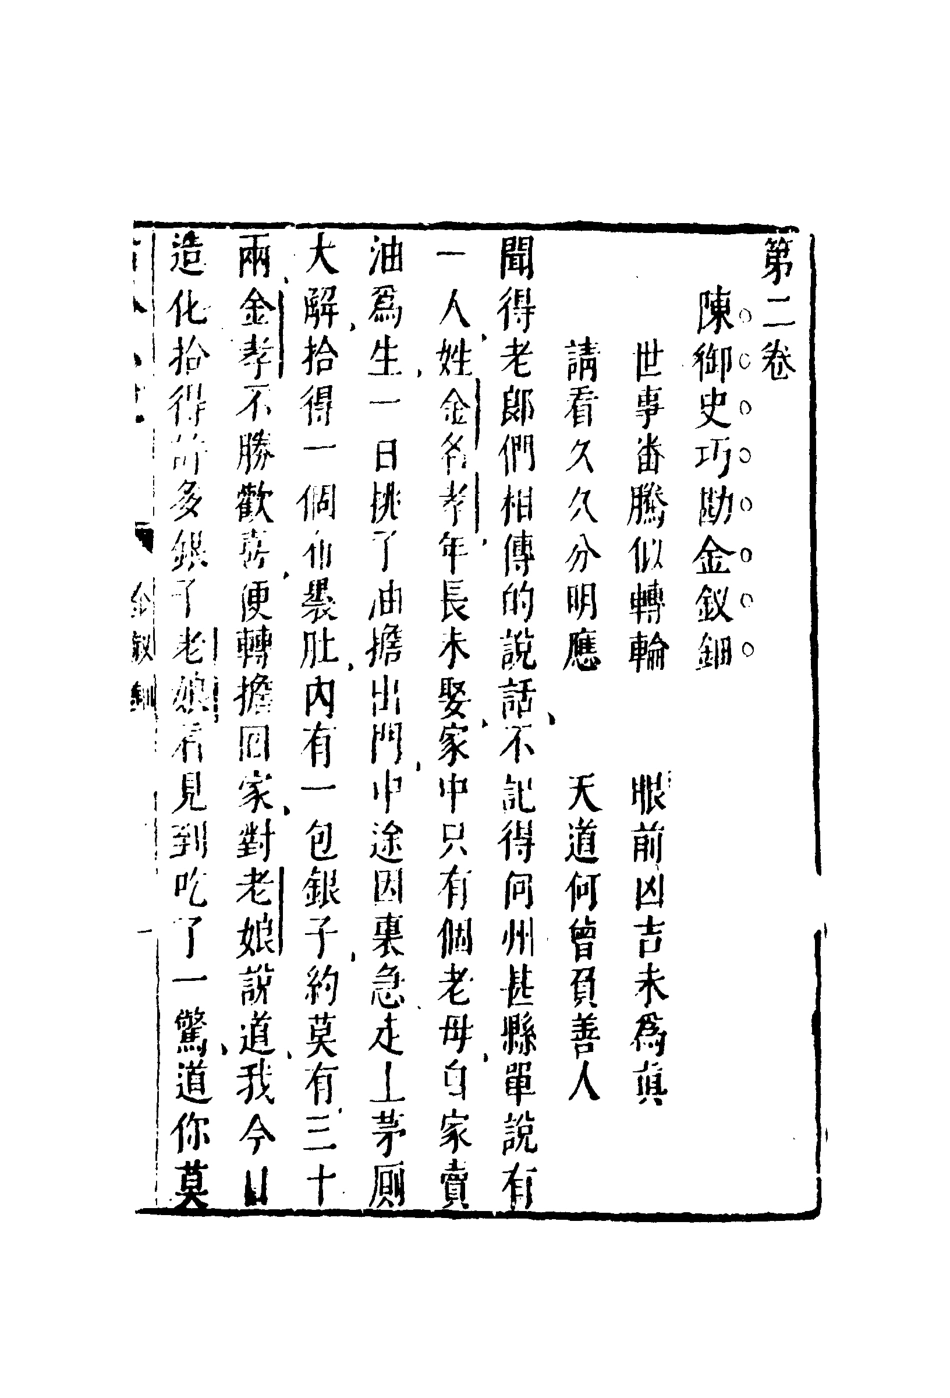 第二卷
陳御史巧勘金釵鈿
世事畨騰似轉輪　眼前凶吉未爲眞
請看久久分明應　天道何曾負善人
聞得老郎們相傳的說話不記得何州甚縣單說有
一人姓金名孝年長未娶家中只有個老母自家賣
油爲生一日挑了油擔出門中途因裏急走上茅厠
大解拾得一個布裹肚内有一包銀子約莫有三十
兩金孝不勝歡喜便轉擔回家對老娘說道我今日
造化拾得許多銀子老娘看見到吃了一驚道你莫
金釵鈿
一